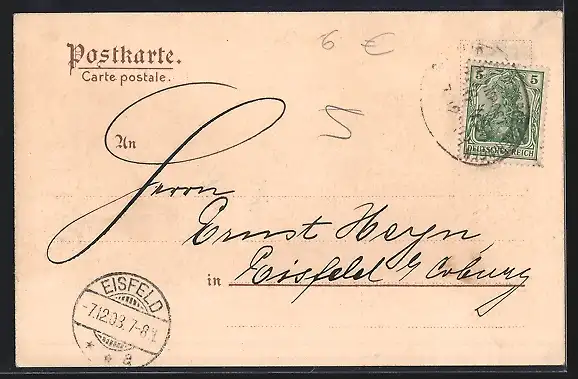 Postkarte.
Carte postale.
6 €
5
5 5
DEUTSCHES REICH
An
Herrn
Ernst Heyn
in Eisfeld b/ Coburg
EISFELD
-7.12.03.7-8V.
* * a